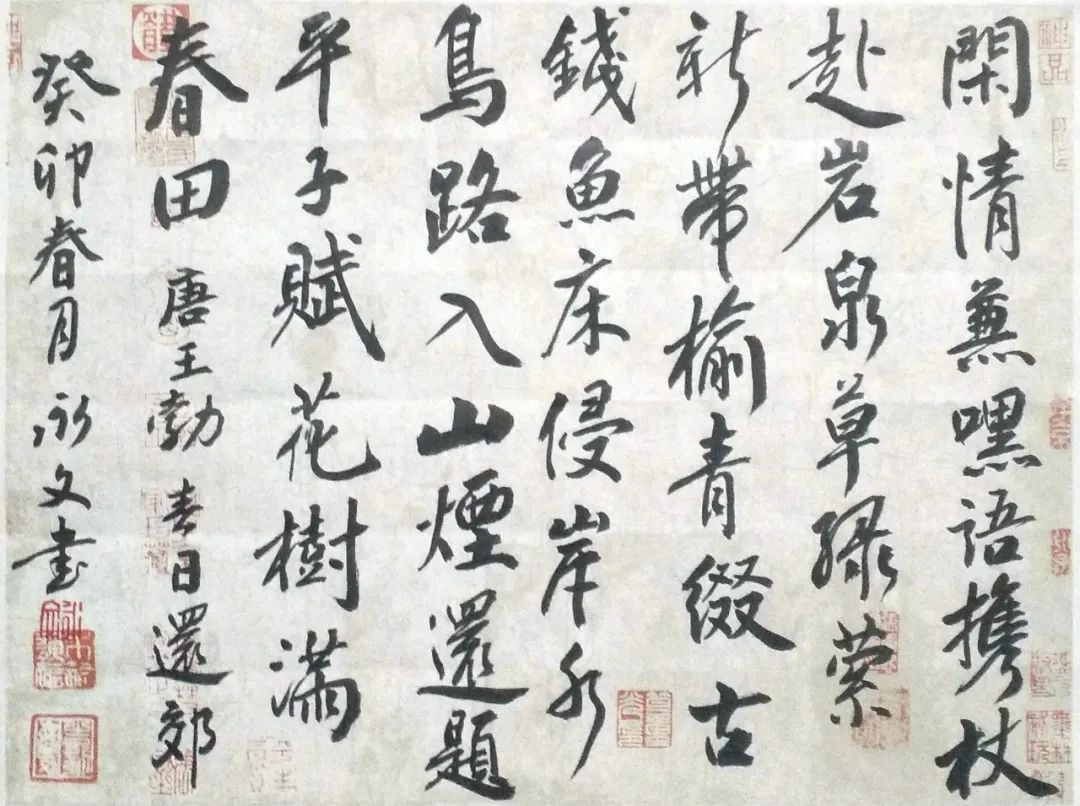 閑情兼嘿語携杖
赴岩泉草緑縈
新帶榆青綴古
錢魚床侵岸水
鳥路入山煙還題
平子賦花樹滿
春田 唐王勃 春日還郊
癸卯春月 永文書